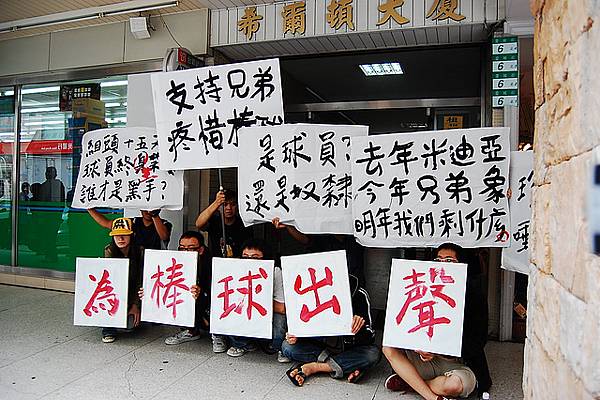 希爾頓大廈
支持兄弟
疼惜棒
組頭十五
球員終
誰才是黑手?
是球員?
還是奴隸
去年米迪亞
今年兄弟象
明年我們剩什麼
為棒球出聲
6
6
6
6